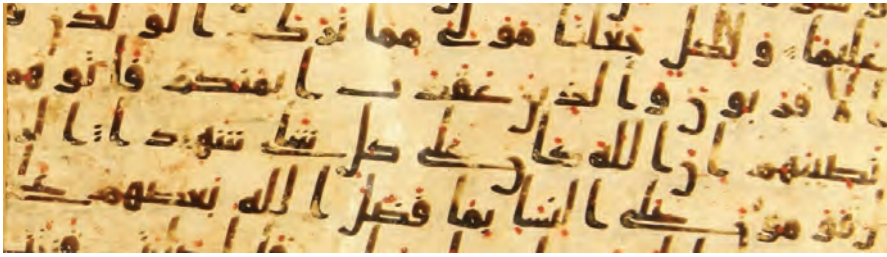 عليما ولكل جعلنا مولى مما ترك الولد
الاقربون والذين عقدت ايمنكم فاتوهم
نصيبهم ان الله كان على كل شى شهيدا الر
قومون على النسا بما فضل الله بعضهم على